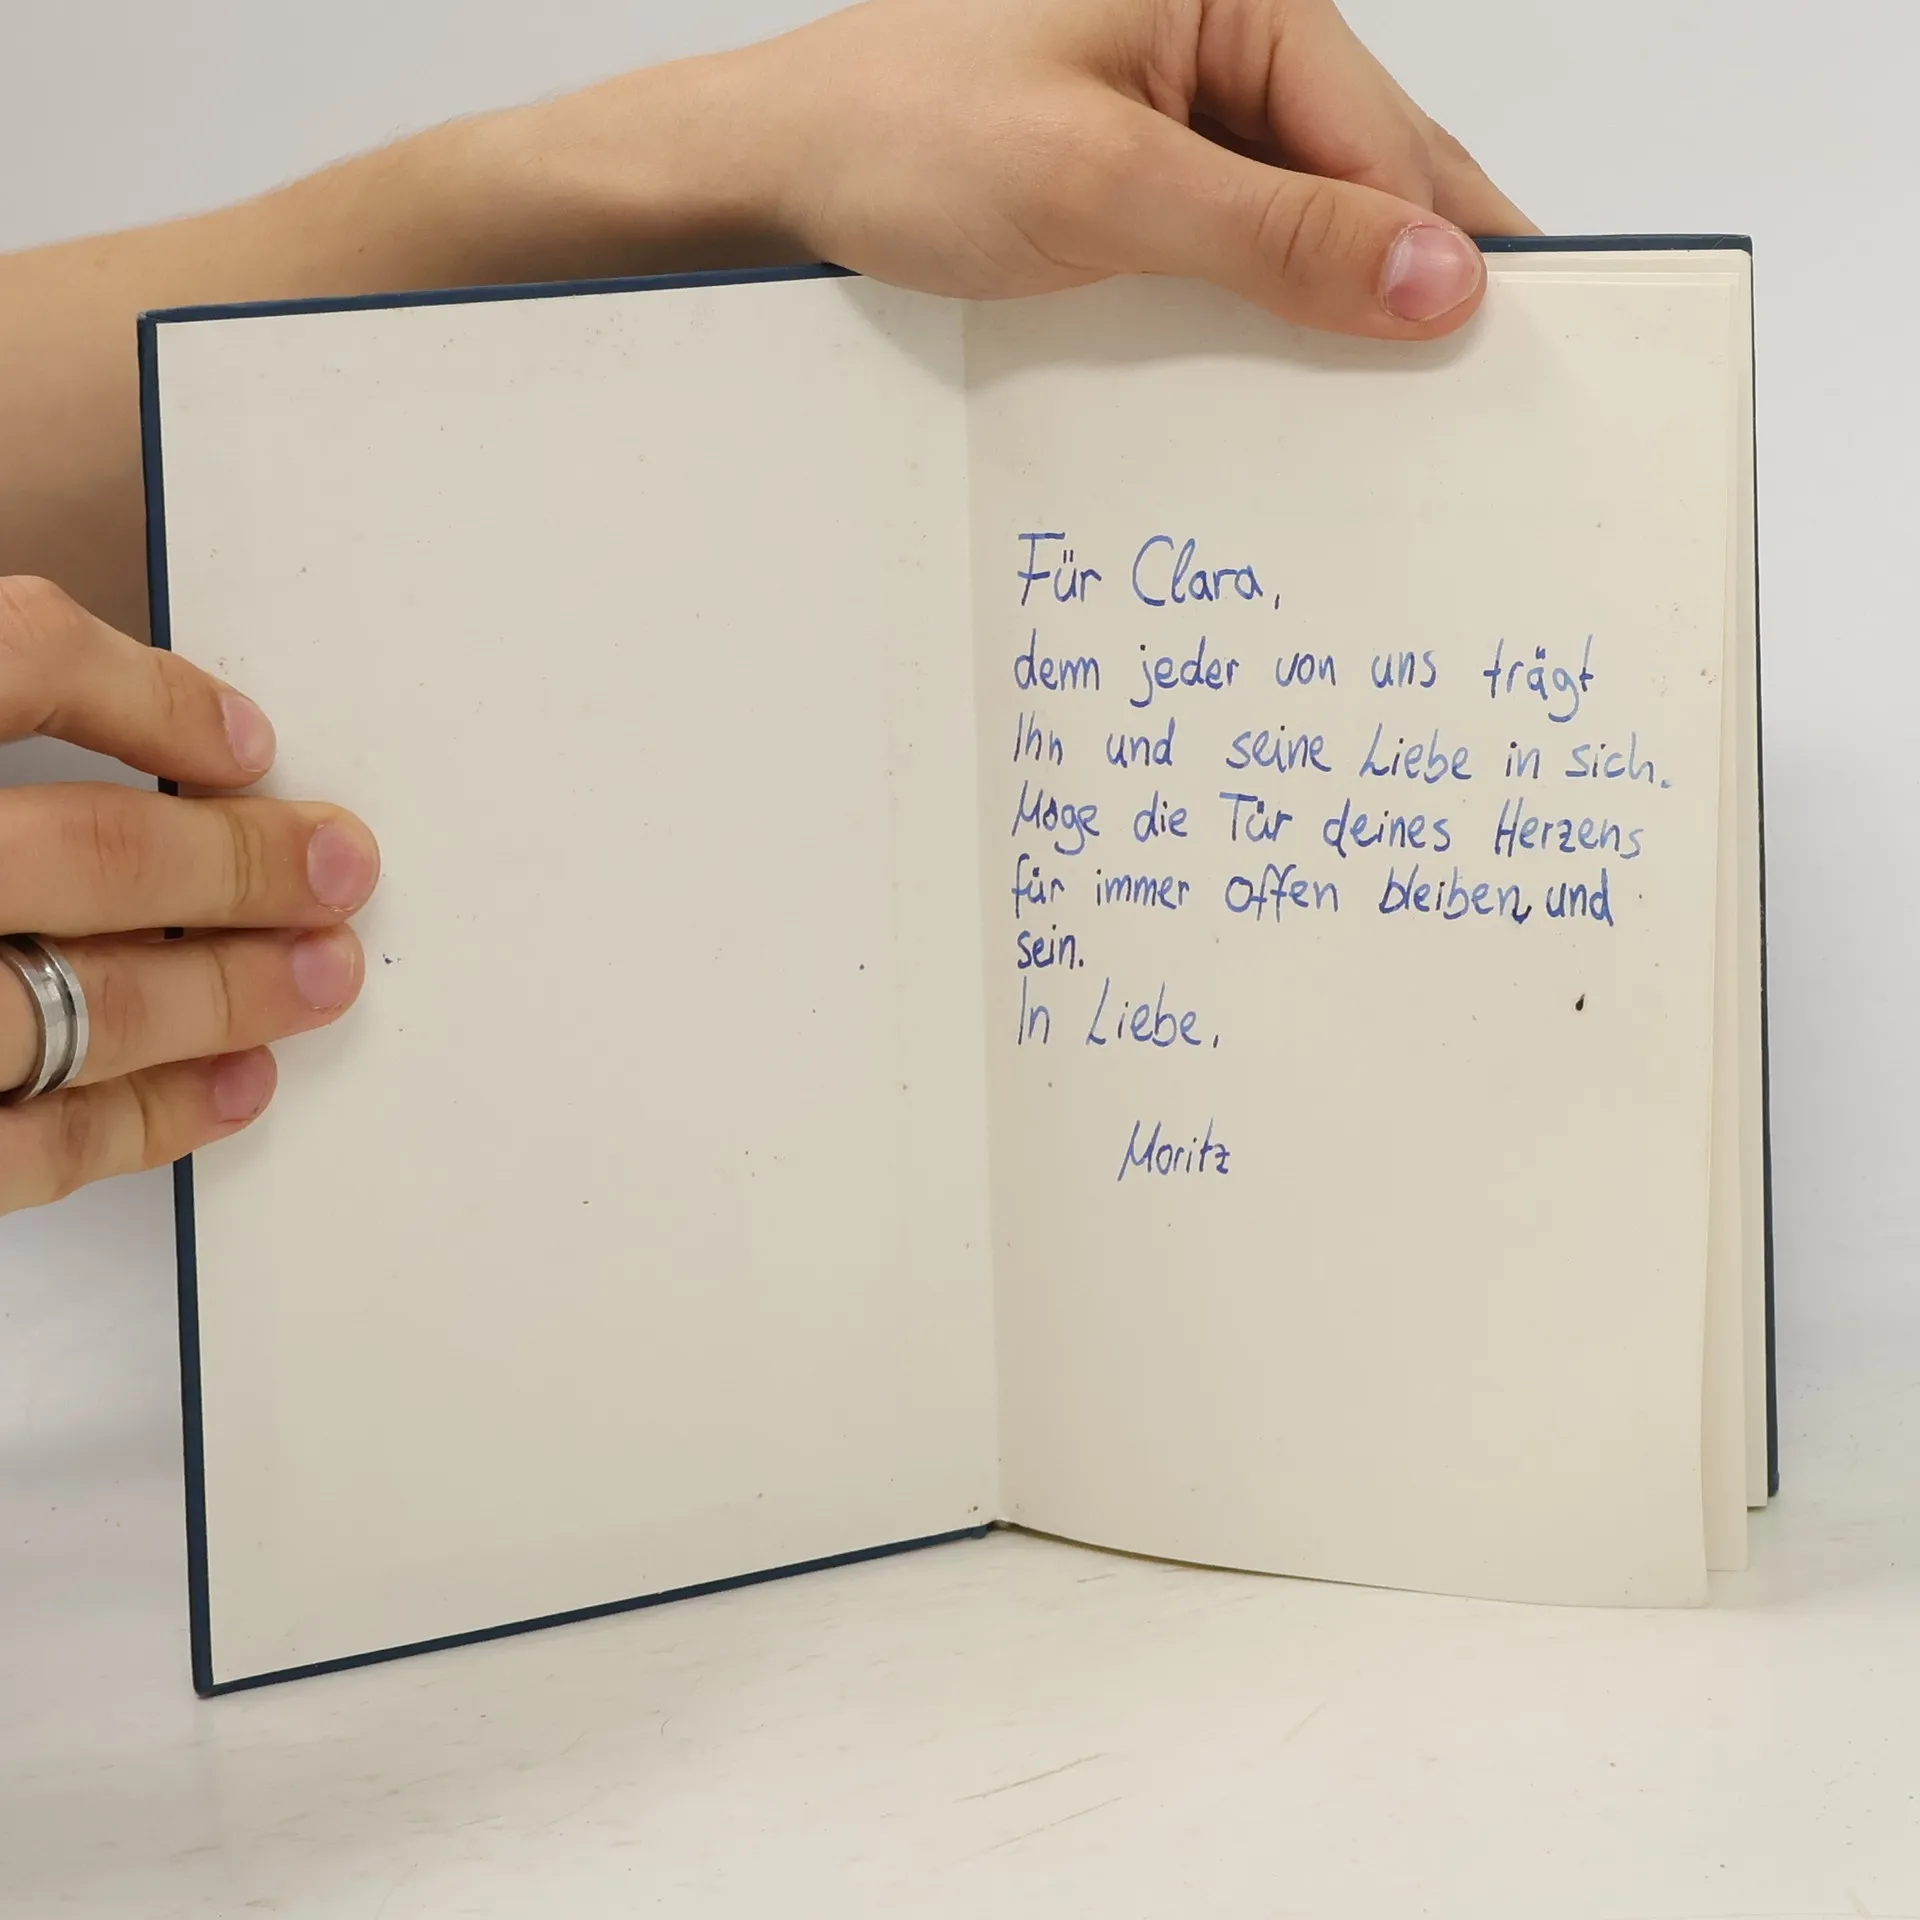 Für Clara,
denn jeder von uns trägt
Ihn und seine Liebe in sich.
Möge die Tür deines Herzens
für immer offen bleiben und
sein.
In Liebe,
Moritz